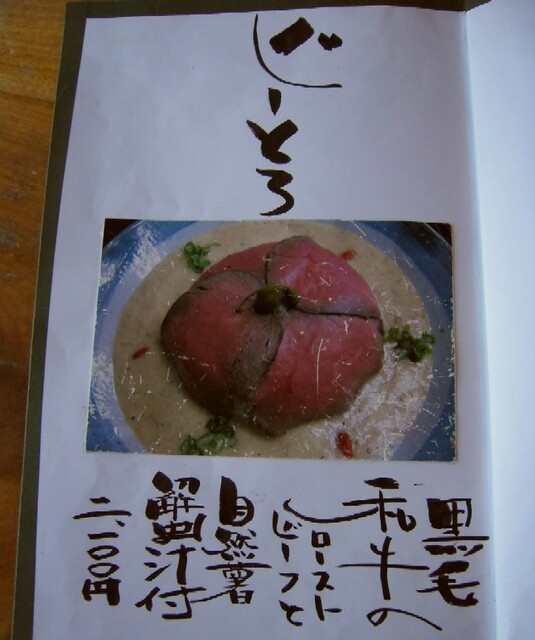 じーとろ
黒毛
和牛の
ロースト
ビーフと
自然薯
蟹汁付
二、一〇〇円